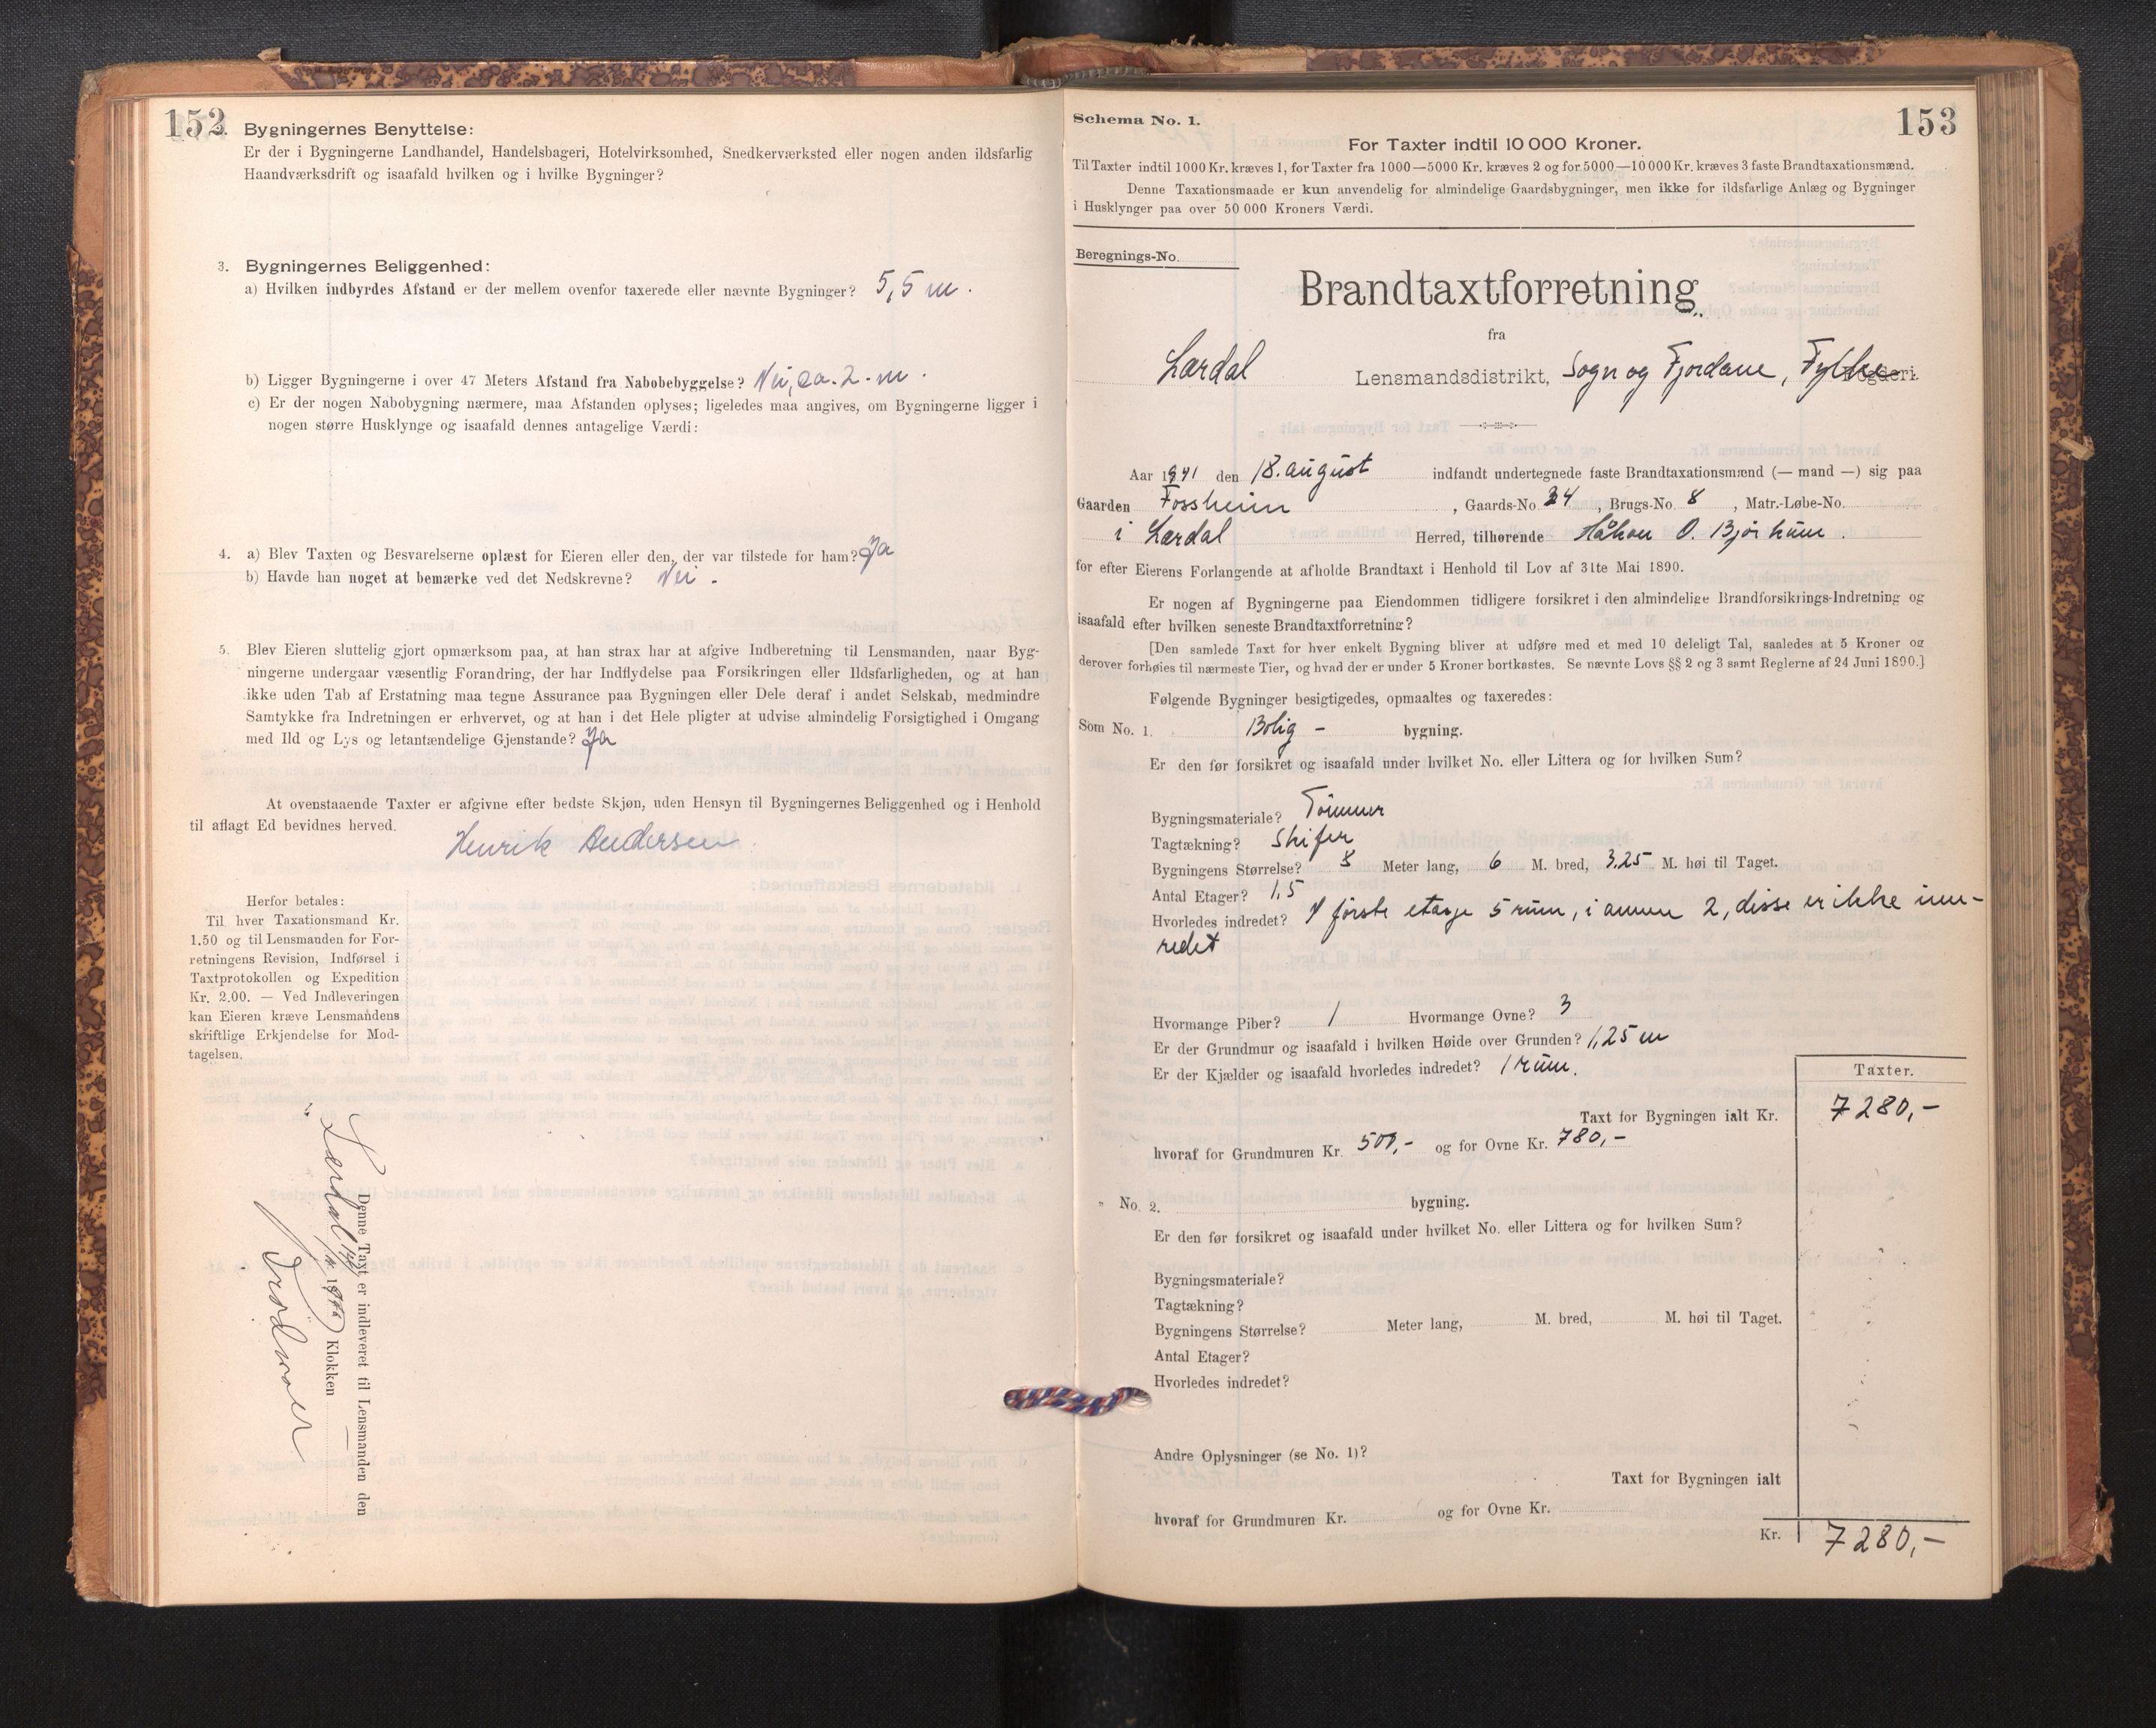 152
2. Bygningernes Benyttelse:
Er der i Bygningerne Landhandel, Handelsbageri, Hotelvirksomhed, Snedkerværksted eller nogen anden ildsfarlig
Haandværksdrift og isaafald hvilken og i hvilke Bygninger?
3. Bygningernes Beliggenhed:
a) Hvilken indbyrdes Afstand er der mellem ovenfor taxerede eller nævnte Bygninger? 5,5 m.
b) Ligger Bygningerne i over 47 Meters Afstand fra Nabobebyggelse? Nei, ca. 2 - m.
c) Er der nogen Nabobygning nærmere, maa Afstanden oplyses; ligeledes maa angives, om Bygningerne ligger i
nogen større Husklynge og isaafald dennes antagelige Værdi:
4. a) Blev Taxten og Besvarelserne oplæst for Eieren eller den, der var tilstede for ham? Ja
b) Havde han noget at bemærke ved det Nedskrevne? Nei.
5. Blev Eieren sluttelig gjort opmærksom paa, at han strax har at afgive Indberetning til Lensmanden, naar Byg-
ningerne undergaar væsentlig Forandring, der har Indflydelse paa Forsikringen eller Ildsfarligheden, og at han
ikke uden Tab af Erstatning maa tegne Assurance paa Bygningen eller Dele deraf i andet Selskab, medmindre
Samtykke fra Indretningen er erhvervet, og at han i det Hele pligter at udvise almindelig Forsigtighed i Omgang
med Ild og Lys og letantændelige Gjenstande? Ja
At ovenstaaende Taxter er afgivne efter bedste Skjøn, uden Hensyn til Bygningernes Beliggenhed og i Henhold
til aflagt Ed bevidnes herved.
Henrik Andersen
Herfor betales:
Til hver Taxationsmand Kr.
1.50 og til Lensmanden for For-
retningens Revision, Indførsel i
Taxtprotokollen og Expedition
Kr. 2.00. — Ved Indleveringen
kan Eieren kræve Lensmandens
skriftlige Erkjendelse for Mod-
tagelsen.
Denne Taxt er indleveret til Lensmanden den
Lærdal Klokken
153
Schema No. 1.
For Taxter indtil 10 000 Kroner.
Til Taxter indtil 1000 Kr. kræves 1, for Taxter fra 1000—5000 Kr. kræves 2 og for 5000—10 000 Kr. kræves 3 faste Brandtaxationsmænd.
Denne Taxationsmaade er kun anvendelig for almindelige Gaardsbygninger, men ikke for ildsfarlige Anlæg og Bygninger
i Husklynger paa over 50 000 Kroners Værdi.
Beregnings-No.
Brandtaxtforretning
fra
Lærdal Lensmandsdistrikt, Sogn og Fjordane, Fylke Fogderi.
Aar 1941 den 18. august indfandt undertegnede faste Brandtaxationsmænd (— mand —) sig paa
Gaarden Fossheim, Gaards-No. 24, Brugs-No. 8, Matr.-Løbe-No.
i Lærdal Herred, tilhørende Håkon O. Bjørkum.
for efter Eierens Forlangende at afholde Brandtaxt i Henhold til Lov af 31te Mai 1890.
Er nogen af Bygningerne paa Eiendommen tidligere forsikret i den almindelige Brandforsikrings-Indretning og
isaafald efter hvilken seneste Brandtaxtforretning?
[Den samlede Taxt for hver enkelt Bygning bliver at udføre med et med 10 deleligt Tal, saaledes at 5 Kroner og
derover forhøies til nærmeste Tier, og hvad der er under 5 Kroner bortkastes. Se nævnte Lovs §§ 2 og 3 samt Reglerne af 24 Juni 1890.]
Følgende Bygninger besigtigedes, opmaaltes og taxeredes:
Som No. 1. Bolig - bygning.
Er den før forsikret og isaafald under hvilket No. eller Littera og for hvilken Sum?
Bygningsmateriale? Tømmer
Tagtækning? Skifer
Bygningens Størrelse? 8 Meter lang, 6 M. bred, 3,25 M. høi til Taget.
Antal Etager? 1,5
Hvorledes indredet? I første etasje 5 rum, i annen 2, disse er ikke inn-
redet
Hvormange Piber? 1 Hvormange Ovne? 3
Er der Grundmur og isaafald i hvilken Høide over Grunden? 1,25 m
Er der Kjælder og isaafald hvorledes indredet? 1 rum.
Taxter.
Taxt for Bygningen ialt Kr. 7280,-
hvoraf for Grundmuren Kr. 500,- og for Ovne Kr. 780,-
" No. 2. bygning.
Er den før forsikret og isaafald under hvilket No. eller Littera og for hvilken Sum?
Bygningsmateriale?
Tagtækning?
Bygningens Størrelse? Meter lang, M. bred, M. høi til Taget.
Antal Etager?
Hvorledes indredet?
Andre Oplysninger (se No. 1)?
Taxt for Bygningen ialt
hvoraf for Grundmuren Kr. og for Ovne Kr.
Kr. 7280,-